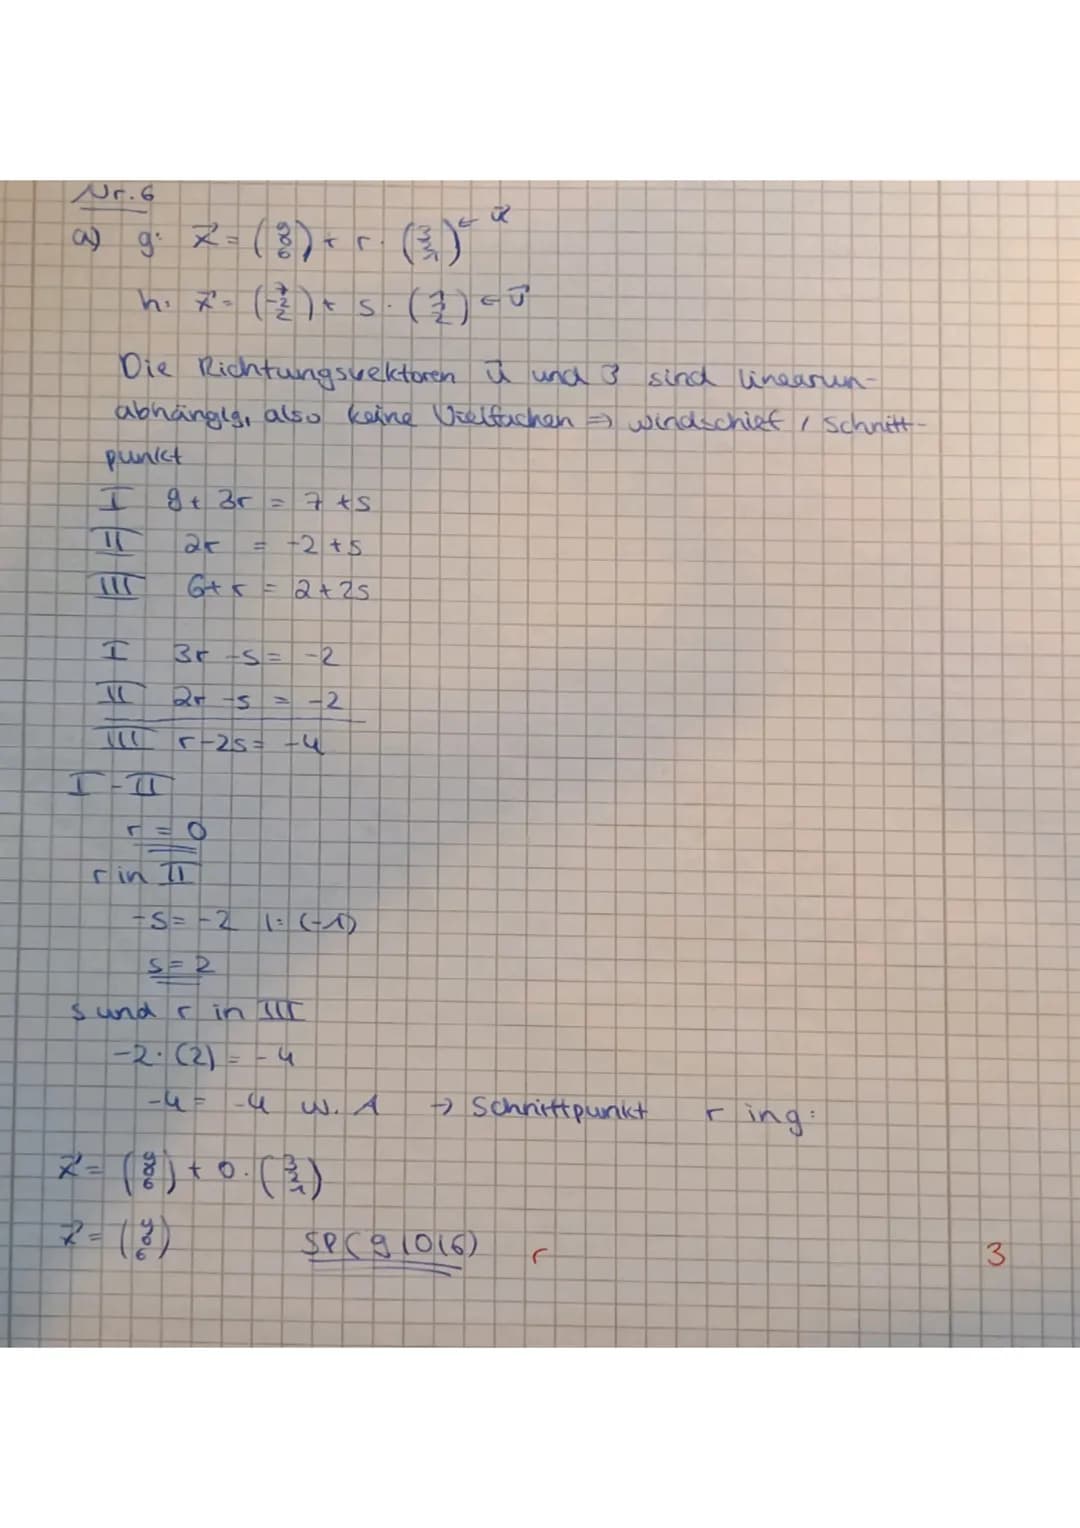 Nr. 6
a) g: x⃗ = (9 0 6) + r · (3 2 1) ← u⃗
h: x⃗ = (7 -2 2) + s · (1 1 2) ← v⃗
Die Richtungsvektoren u⃗ und v⃗ sind linearun-
abhängig, also keine Vielfachen ⇒ windschief / Schnitt-
punkt
I 9 + 3r = 7 + s
II 2r = -2 + s
III 6 + r = 2 + 2s
I 3r - s = -2
II 2r - s = -2
III r - 2s = -4
I - II
r = 0
r in II
-s = -2 |: (-1)
s = 2
s und r in III
-2 · (2) = -4
-4 = -4 w. A → Schnittpunkt r in g:
x⃗ = (9 0 6) + 0 · (3 2 1)
x⃗ = (9 0 6) SP(9|0|6) r 3